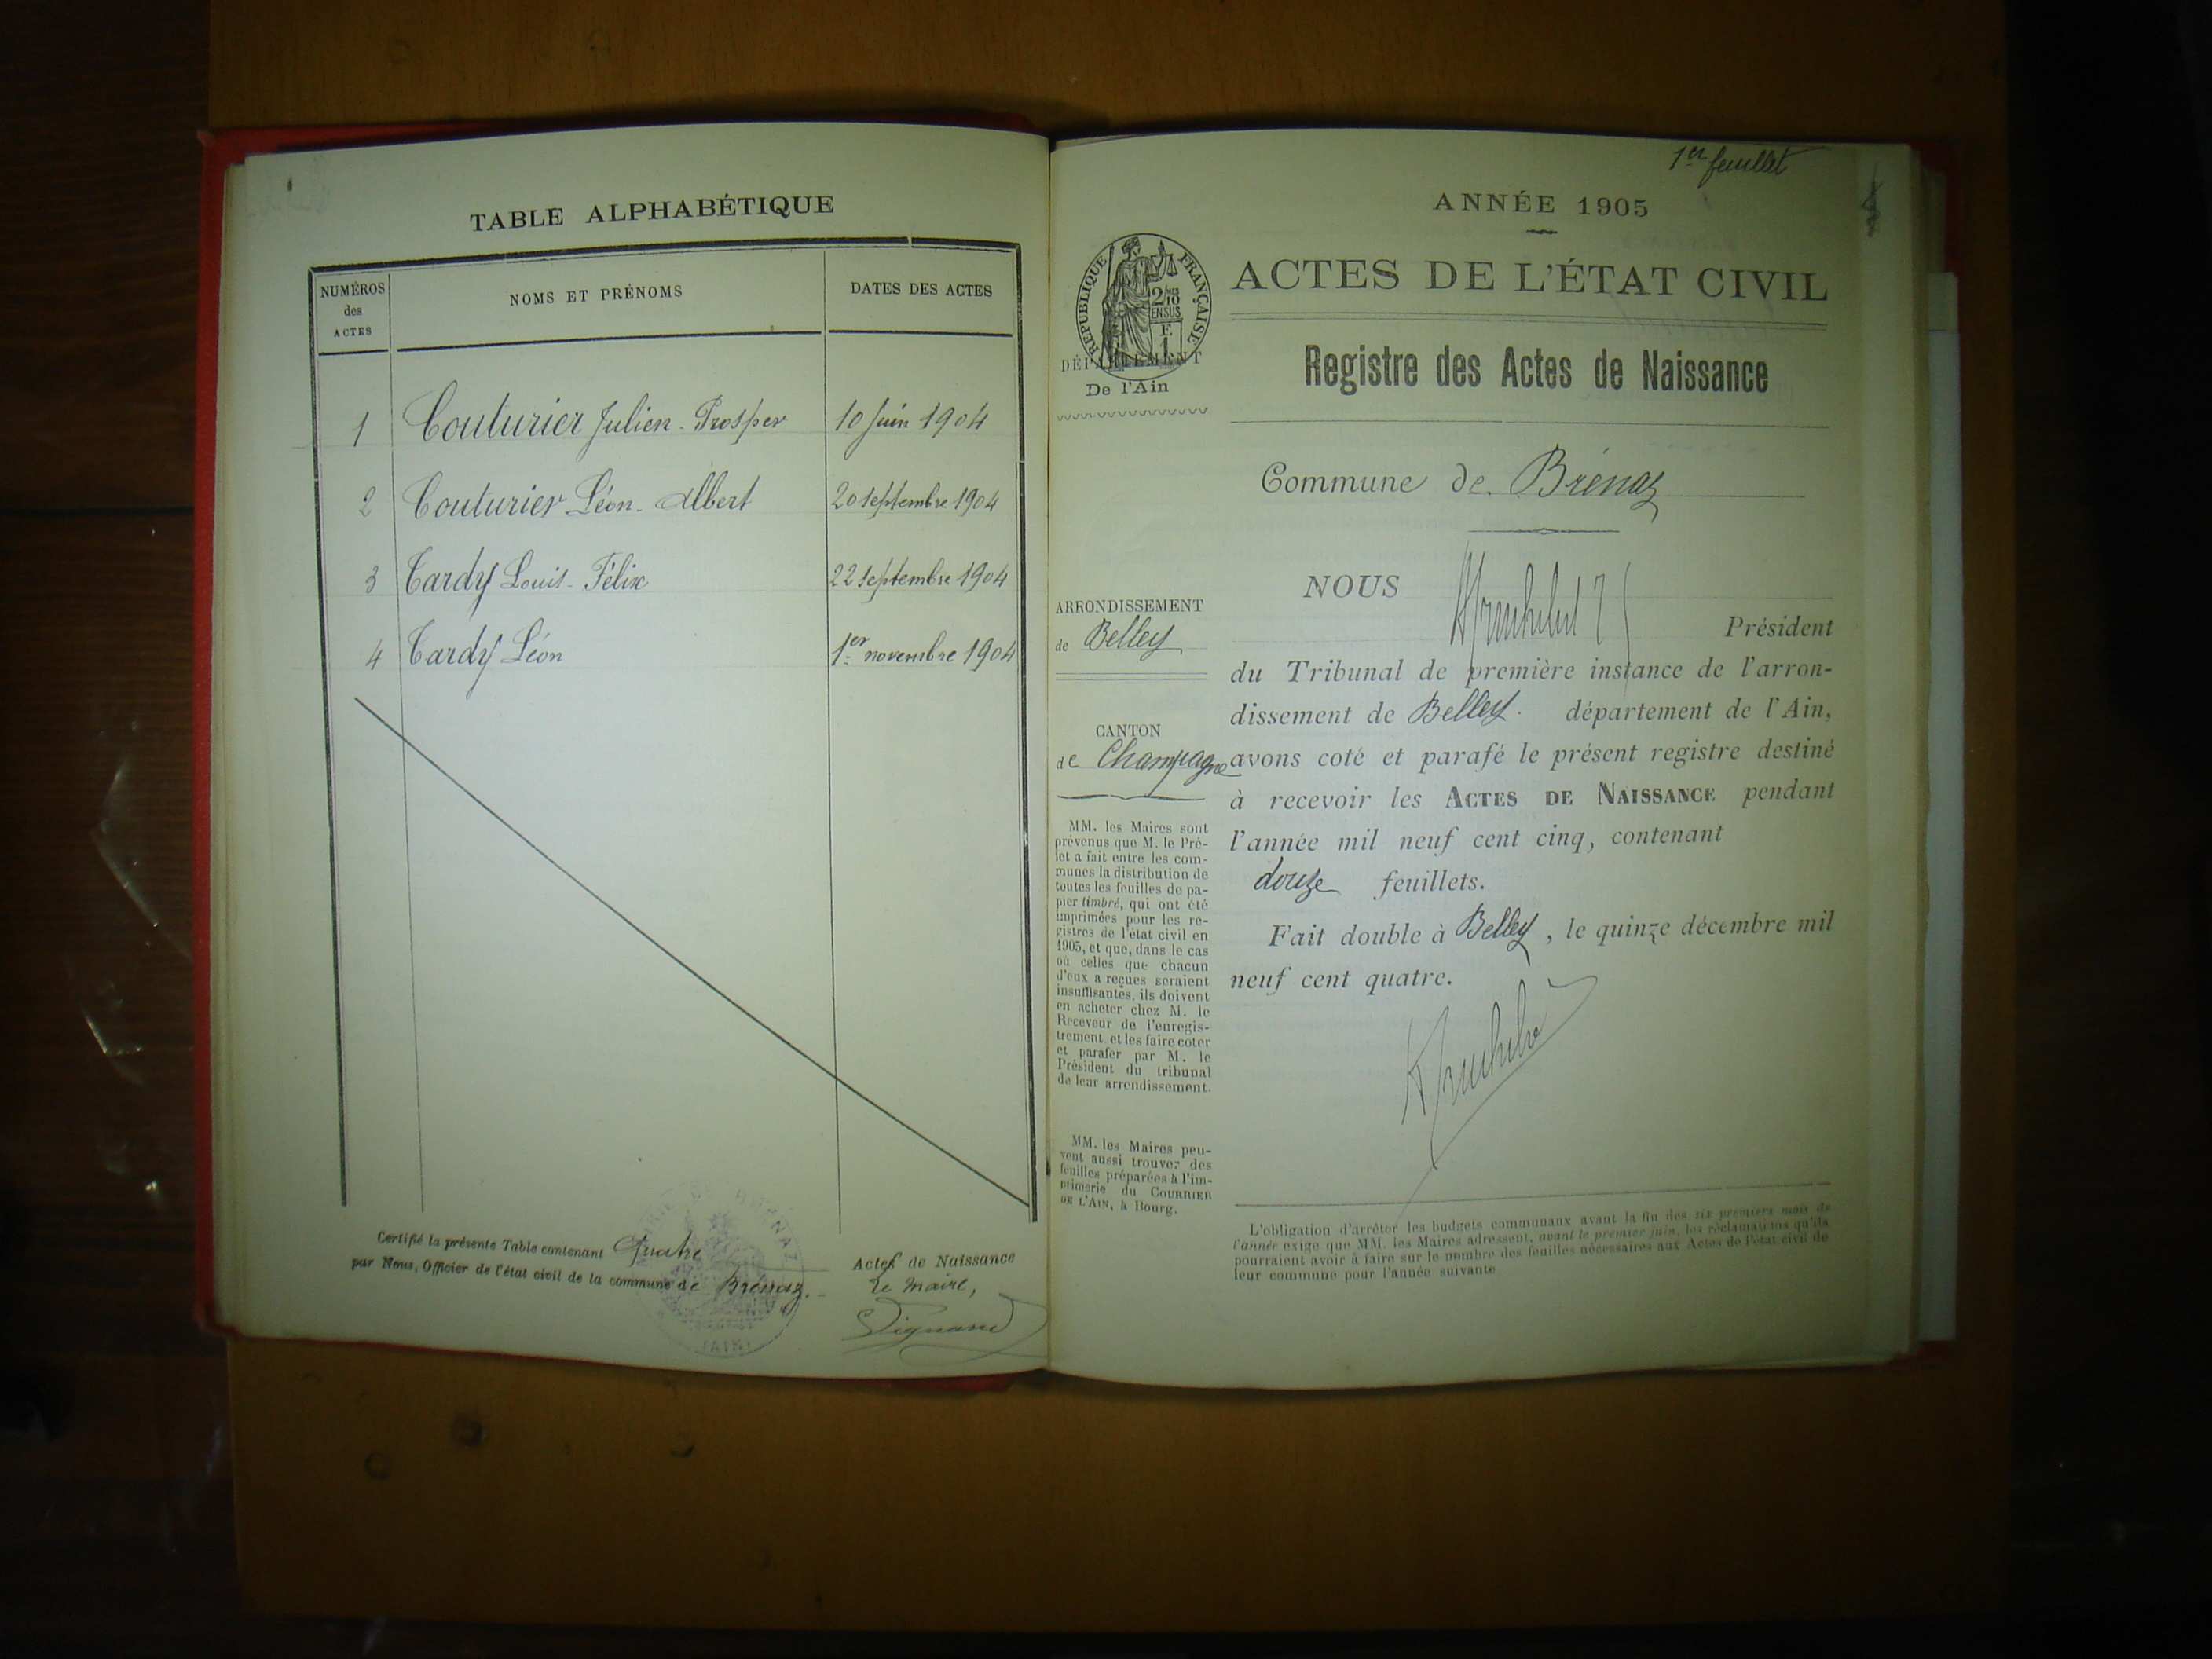 TABLE ALPHABÉTIQUE
NUMÉROS
des
ACTES
NOMS ET PRÉNOMS
DATES DES ACTES
1 Couturier Julien-Prosper 10 Juin 1904
2 Couturier Léon-Albert 20 septembre 1904
3 Tardy Louis-Félix 22 septembre 1904
4 Tardy Léon 1er novembre 1904
Certifié la présente Table contenant Quatre Actes de Naissance
par Nous, Officier de l'état civil de la commune de Brénaz.
Le Maire,
1er feuillet
ANNÉE 1905
ACTES DE L'ÉTAT CIVIL
RÉPUBLIQUE FRANÇAISE
2/10
EN SUS
F.
1
DÉPARTEMENT
De l'Ain
Registre des Actes de Naissance
Commune de Brénaz
ARRONDISSEMENT
de Belley
CANTON
de Champagne
MM. les Maires sont
prévenus que M. le Pré-
fet a fait entre les com-
munes la distribution de
toutes les feuilles de pa-
pier timbré, qui ont été
imprimées pour les re-
gistres de l'état civil en
1905, et que, dans le cas
où celles que chacun
d'eux a reçues seraient
insuffisantes, ils doivent
en acheter chez M. le
Receveur de l'enregis-
trement et les faire coter
et parafer par M. le
Président du tribunal
de leur arrondissement.
MM. les Maires peu-
vent aussi trouver des
feuilles préparées à l'im-
primerie du COURRIER
DE L'AIN, à Bourg.
NOUS
Président
du Tribunal de première instance de l'arron-
dissement de Belley. département de l'Ain,
avons coté et parafé le présent registre destiné
à recevoir les ACTES DE NAISSANCE pendant
l'année mil neuf cent cinq, contenant
douze feuillets.
Fait double à Belley, le quinze décembre mil
neuf cent quatre.
L'obligation d'arrêter les budgets communaux avant la fin des six premiers mois de
l'année exige que MM. les Maires adressent, avant le premier juin, les réclamations qu'ils
pourraient avoir à faire sur le nombre des feuilles nécessaires aux Actes de l'état civil de
leur commune pour l'année suivante